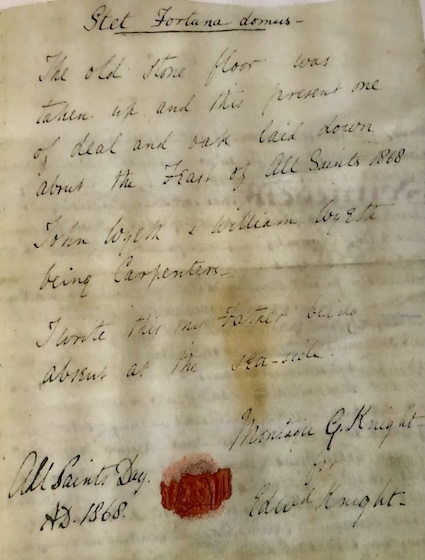 Stet Fortuna domus -
The old stone floor was
taken up and this present one
of deal and oak laid down
about the Feast of All Saints 1868
John Wyeth & William Wyeth
being Carpenters -
I write this my Father being
absent at the sea-side.
Montagu G. Knight -
for
Edwd Knight -
All Saints Day.
AD. 1868